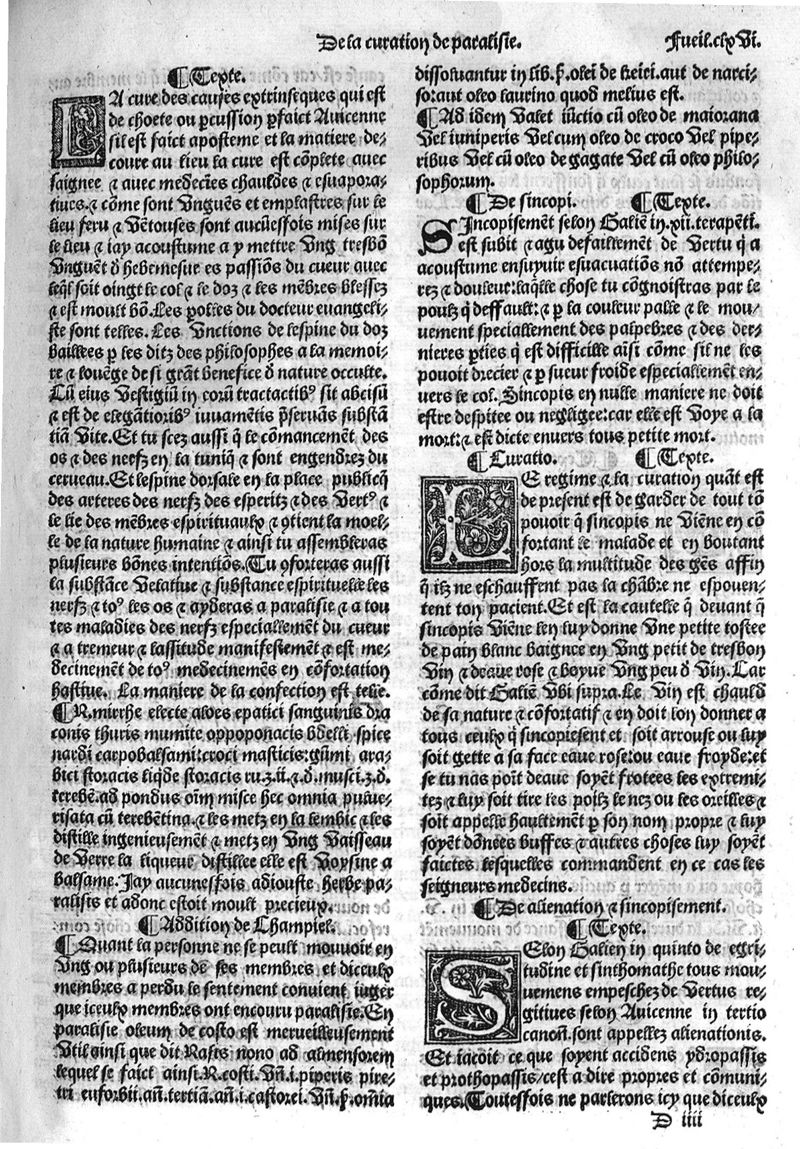 De la curation de paralisie.
Fueil.clxVi.
¶ Texte.
LA cure des causes extrinseques qui est
de choete ou p̱cussion p̱faict Auicenne
sil est faict aposteme et la matiere de⸗
coure au lieu la cure est cõplete auec
saignee ⁊ auec medecĩes chauldes ⁊ esuapora⸗
tiues.⁊ cõme sont Vnguẽs et emplastres sur le
lieu feru ⁊ Vẽtouses sont aucũesfois mises sur
le lieu ⁊ iay acoustume a y mettre Vng tresbõ
Vnguẽt õ hebemesue es passiõs du cueur auec
leq̃l soit oingt le col ⁊ le doz ⁊ les mẽbres blessez
⁊ est moult bõ. Les polies du docteur euangeli⸗
ste sont telles. Les Vnctions de lespine du doz
baillees p̱ les ditz des philosophes a la memoi⸗
re ⁊ louẽge de si grãt benefice õ nature occulte.
Cũ eius Vestigiũ in corũ tractactibꝰ sit abcisũ
⁊ est de elegãtioribꝰ iuuamẽtis p̃seruãs substã
tiã Vite. Et tu scez aussi q̃ le cõmancement des
os ⁊ des nerfz en la tuniq̃ ⁊ sont engendrez du
cerueau. Et lespine dorsale en la place publicq̃
des arteres des nerfz des esperitz ⁊ des Vertꝰ ⁊
le lie des mẽbres espirituaulx ⁊ ꝯtient la moel⸗
le de la nature humaine ⁊ ainsi tu assembleras
plusieurs bõnes intentiõs. Tu ꝯforteras aussi
la substãce Velatiue ⁊ substance espirituelle les
nerfz ⁊ toꝰ les os ⁊ ayderas a paralisie ⁊ a tou
tes maladies des nerfz especiallemẽt du cueur
⁊ a tremeur ⁊ lassitude manifestemẽt ⁊ est me⸗
decinement de toꝰ medecinemẽs en cõfortation
hastiue. La maniere de la confection est telle.
¶ R. mirrhe electe aloes epatici sanguinis dra
conis thuris mumite opponacis bdelli spice
nardi carpobalsami:croci masticis: gũmi ara⸗
bici storacis liq̃de storacis ru.ʒ.ii.⁊.d. musci.ʒ.d.
terebẽ. ad pondus oĩm misce hec omnia pulue⸗
risata cũ terebẽtina.⁊ les metz en la lembic ⁊ les
distille ingenieusemẽt ⁊ metz en Vng Vaisseau
de Verre la liqueur distillee elle est Voysine a
balsame. Jay aucunesfois adiouste herbe pa⸗
ralisis et adonc estoit moult precieux.
¶ Addition de Champiel.
¶ Quant la personne ne se peult mouuoir en
Vng ou plusieurs de ses membres et diceulx
membres a perdu le sentement conuient iuger
que iceulx membres ont encouru paralisie. En
paralisie oleum de costo est merueilleusement
Vtil ainsi que dit Rasis nono ad almensorem
lequel se faict ainsi. R. costi. Vñ.i.piperis pire⸗
tri euforbii.añ.tertiã.añ.i castorei. Vñ.p̱.omĩa
dissoluantur in lib.p̱.olei de keiri.aut de narci⸗
so:aut oleo laurino quod melius est.
¶ Ad idem Valet iũctio cũ oleo de maiorana
Vel iuniperis Vel cum oleo de croco Vel pipe⸗
ribus Vel cũ oleo de gagate Vel cũ oleo philo⸗
sophorum.
¶ De sincopi. ¶ Texte.
SIncopisemẽt selon Galiẽ in.xii.terapẽti.
est subit ⁊ agu defaillement de Vertu q̃ a
acoustume ensuyuir esuacuatiõs nõ attempe⸗
rez ⁊ douleur:laq̃lle chose tu cõgnoistras par le
poulx q̃ deffault:⁊ p̱ la couleur palle ⁊ le mou⸗
uement speciallement des palpebres ⁊ des der⸗
nieres p̱ties q̃ est difficille aĩsi cõme sil ne les
pouoit drecier ⁊ p̱ sueur froide especiallement en⸗
uers le col. Sincopis en nulle maniere ne doit
estre despitee ou negligee:car elle est Voye a la
mort:⁊ est dicte enuers tous petite mort.
¶ Curatio. ¶ Texte.
LE regime ⁊ la curation quãt est
de present est de garder de tout tõ
pouoir q̃ sincopis ne Viẽne en cõ
fortant le malade et en boutant
hors la multitude des gẽs affin
q̃ ilz ne eschauffent pas la chãbre ne espouen⸗
tent ton pacient. Et est la cautelle q̃ deuant q̃
sincopis Viẽne len luy donne Vne petite tostee
de pain blanc baignee en Vng petit de tresbon
Vin ⁊ deaue rose ⁊ boyue Vng peu õ Vin. Car
cõme dit Galiẽ Vbi supra. Le Vin est chauld
de sa nature ⁊ cõfortatif ⁊ en doit lon donner a
tous ceulx q̃ sincopiesent et soit arrouse ou luy
soit gette a sa face eaue rose:ou eaue froyde:et
se tu nas poĩt deaue soyẽt frotees les extremi⸗
tez ⁊ luy soit tire les poĩlz le nez ou les oreilles ⁊
soit appelle haultemẽt p̱ son nom propre ⁊ luy
soyẽt dõnees buffes ⁊ autres choses luy soyẽt
faictes lesquelles commandent en ce cas les
seigneurs medecins.
¶ De alienation ⁊ sincopisement.
¶ Texte.
SElon Galien in quinto de egri⸗
tudine et sinthomathe tous mou⸗
uemens empeschez de Vertus re⸗
gitiues selon Auicenne in tertio
canoñ.sont appellez alienationis.
Et iacoit ce que soyent accidens ydropassis
et prothopassis/cest a dire propres et cõmuni⸗
ques. Toutesfois ne parlerons icy que diceulx
D iiii